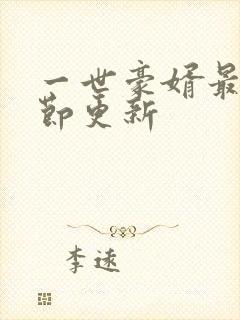 一世豪婿最
节更新
李远